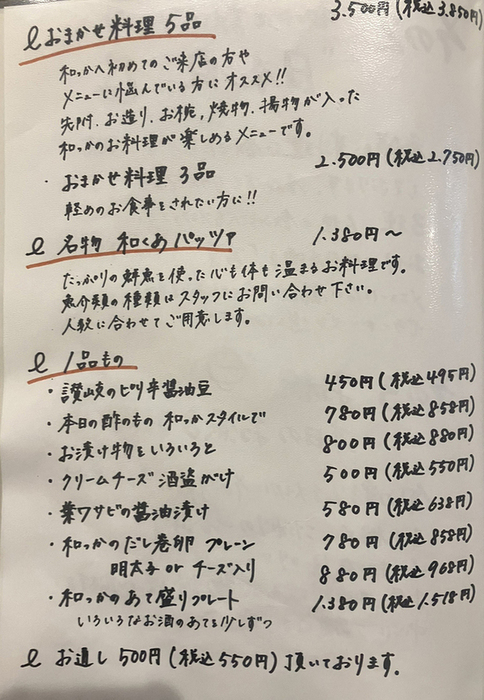 おまかせ料理 5品 3.500円(税込 3.850円)
和っかへ初めてのご来店の方や
メニューに悩んでいる方にオススメ!!
先附、お造り、お椀、焼物、揚物が入った
和っかのお料理が楽しめるメニューです。
・おまかせ料理 3品 2.500円(税込 2.750円)
軽めのお食事をされたい方に!!
名物 和くあパッツァ 1.380円〜
たっぷりの鮮魚を使った心も体も温まるお料理です。
魚介類の種類はスタッフにお問い合わせ下さい。
人数に合わせてご用意します。
1品もの
・讃岐のピリ辛醤油豆 450円(税込 495円)
・本日の酢のもの 和っかスタイルで 780円(税込 858円)
・お漬け物をいろいろと 800円(税込 880円)
・クリームチーズ 酒盗がけ 500円(税込 550円)
・葉ワサビの醤油漬け 580円(税込 638円)
・和っかのだし巻卵 プレーン 780円(税込 858円)
明太子 or チーズ入り 880円(税込 968円)
・和っかのあて盛りプレート 1.380円(税込 1.518円)
いろいろなお酒のあてを少しずつ
お通し 500円(税込 550円)頂いております。